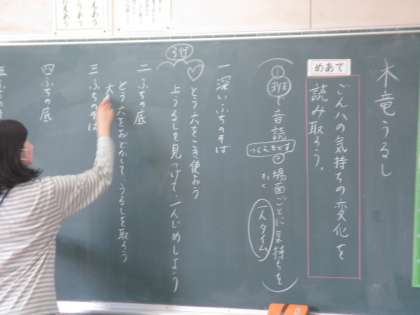 木竜うるし
めあて
ごん八の気持ちの変化を
読み取ろう。
① 班で音読
② 場面ごとに気持ちを
一人タイム
3行
一 深いふちの
とう六をこき使おう
上うるしを見つけて、一人じめしよう
二 ふちの底
とう六をおどかして、うるしを取ろう
三 ふちの
四 ふちの底